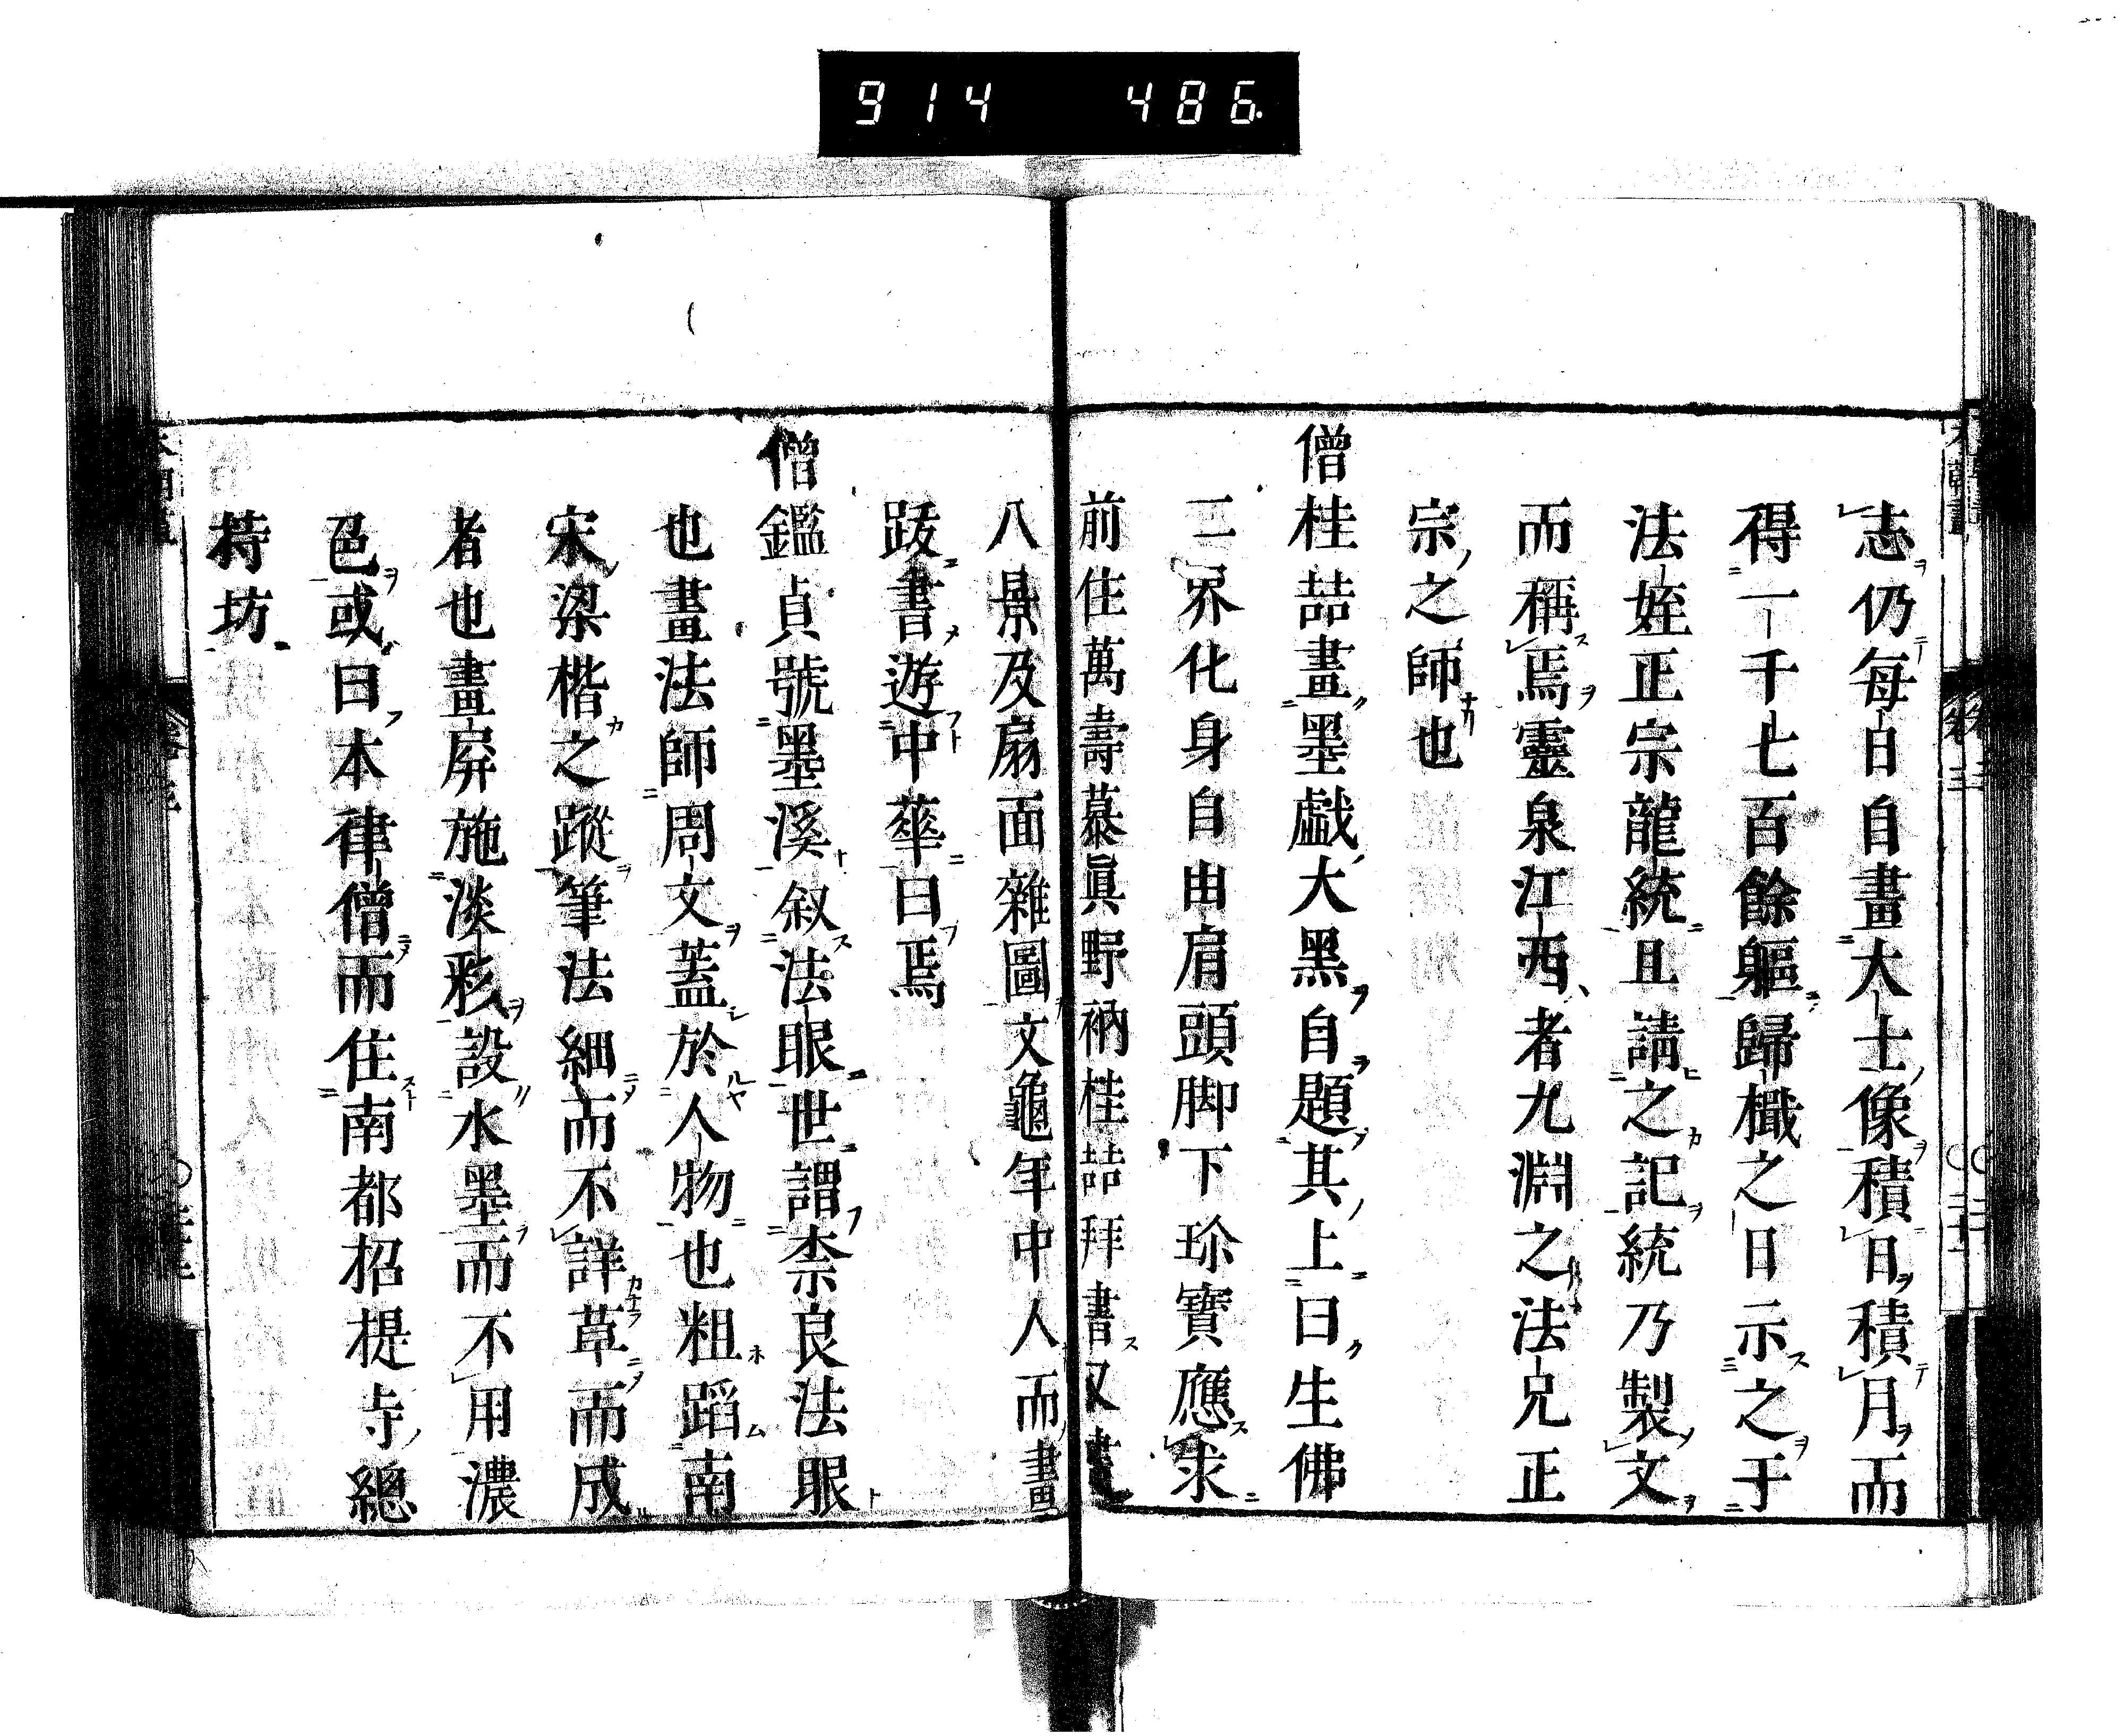 914 486
志仍每日自畫大士像積日積月而
得一千七百餘軀歸檝之日示之于
法姪正宗龍統且請之記統乃製文
而稱焉靈泉江西者九淵之法兄正
宗之師也
僧桂喆畫墨戯大黑自題其上曰生佛
二界化身自由肩頭脚下珍寶應求
前住萬壽慕眞野衲桂喆拜書又畫
八景及扇面雜圖文龜年中人而畫
跋書遊中華曰焉
僧鑑貞號墨溪叙法眼世謂柰良法眼
也畫法師周文蓋於人物也粗蹈南
宋梁楷之蹤筆法細而不詳草而成
者也畫屏施淡彩設水墨而不用濃
色或曰本律僧而住南都招提寺總
持坊